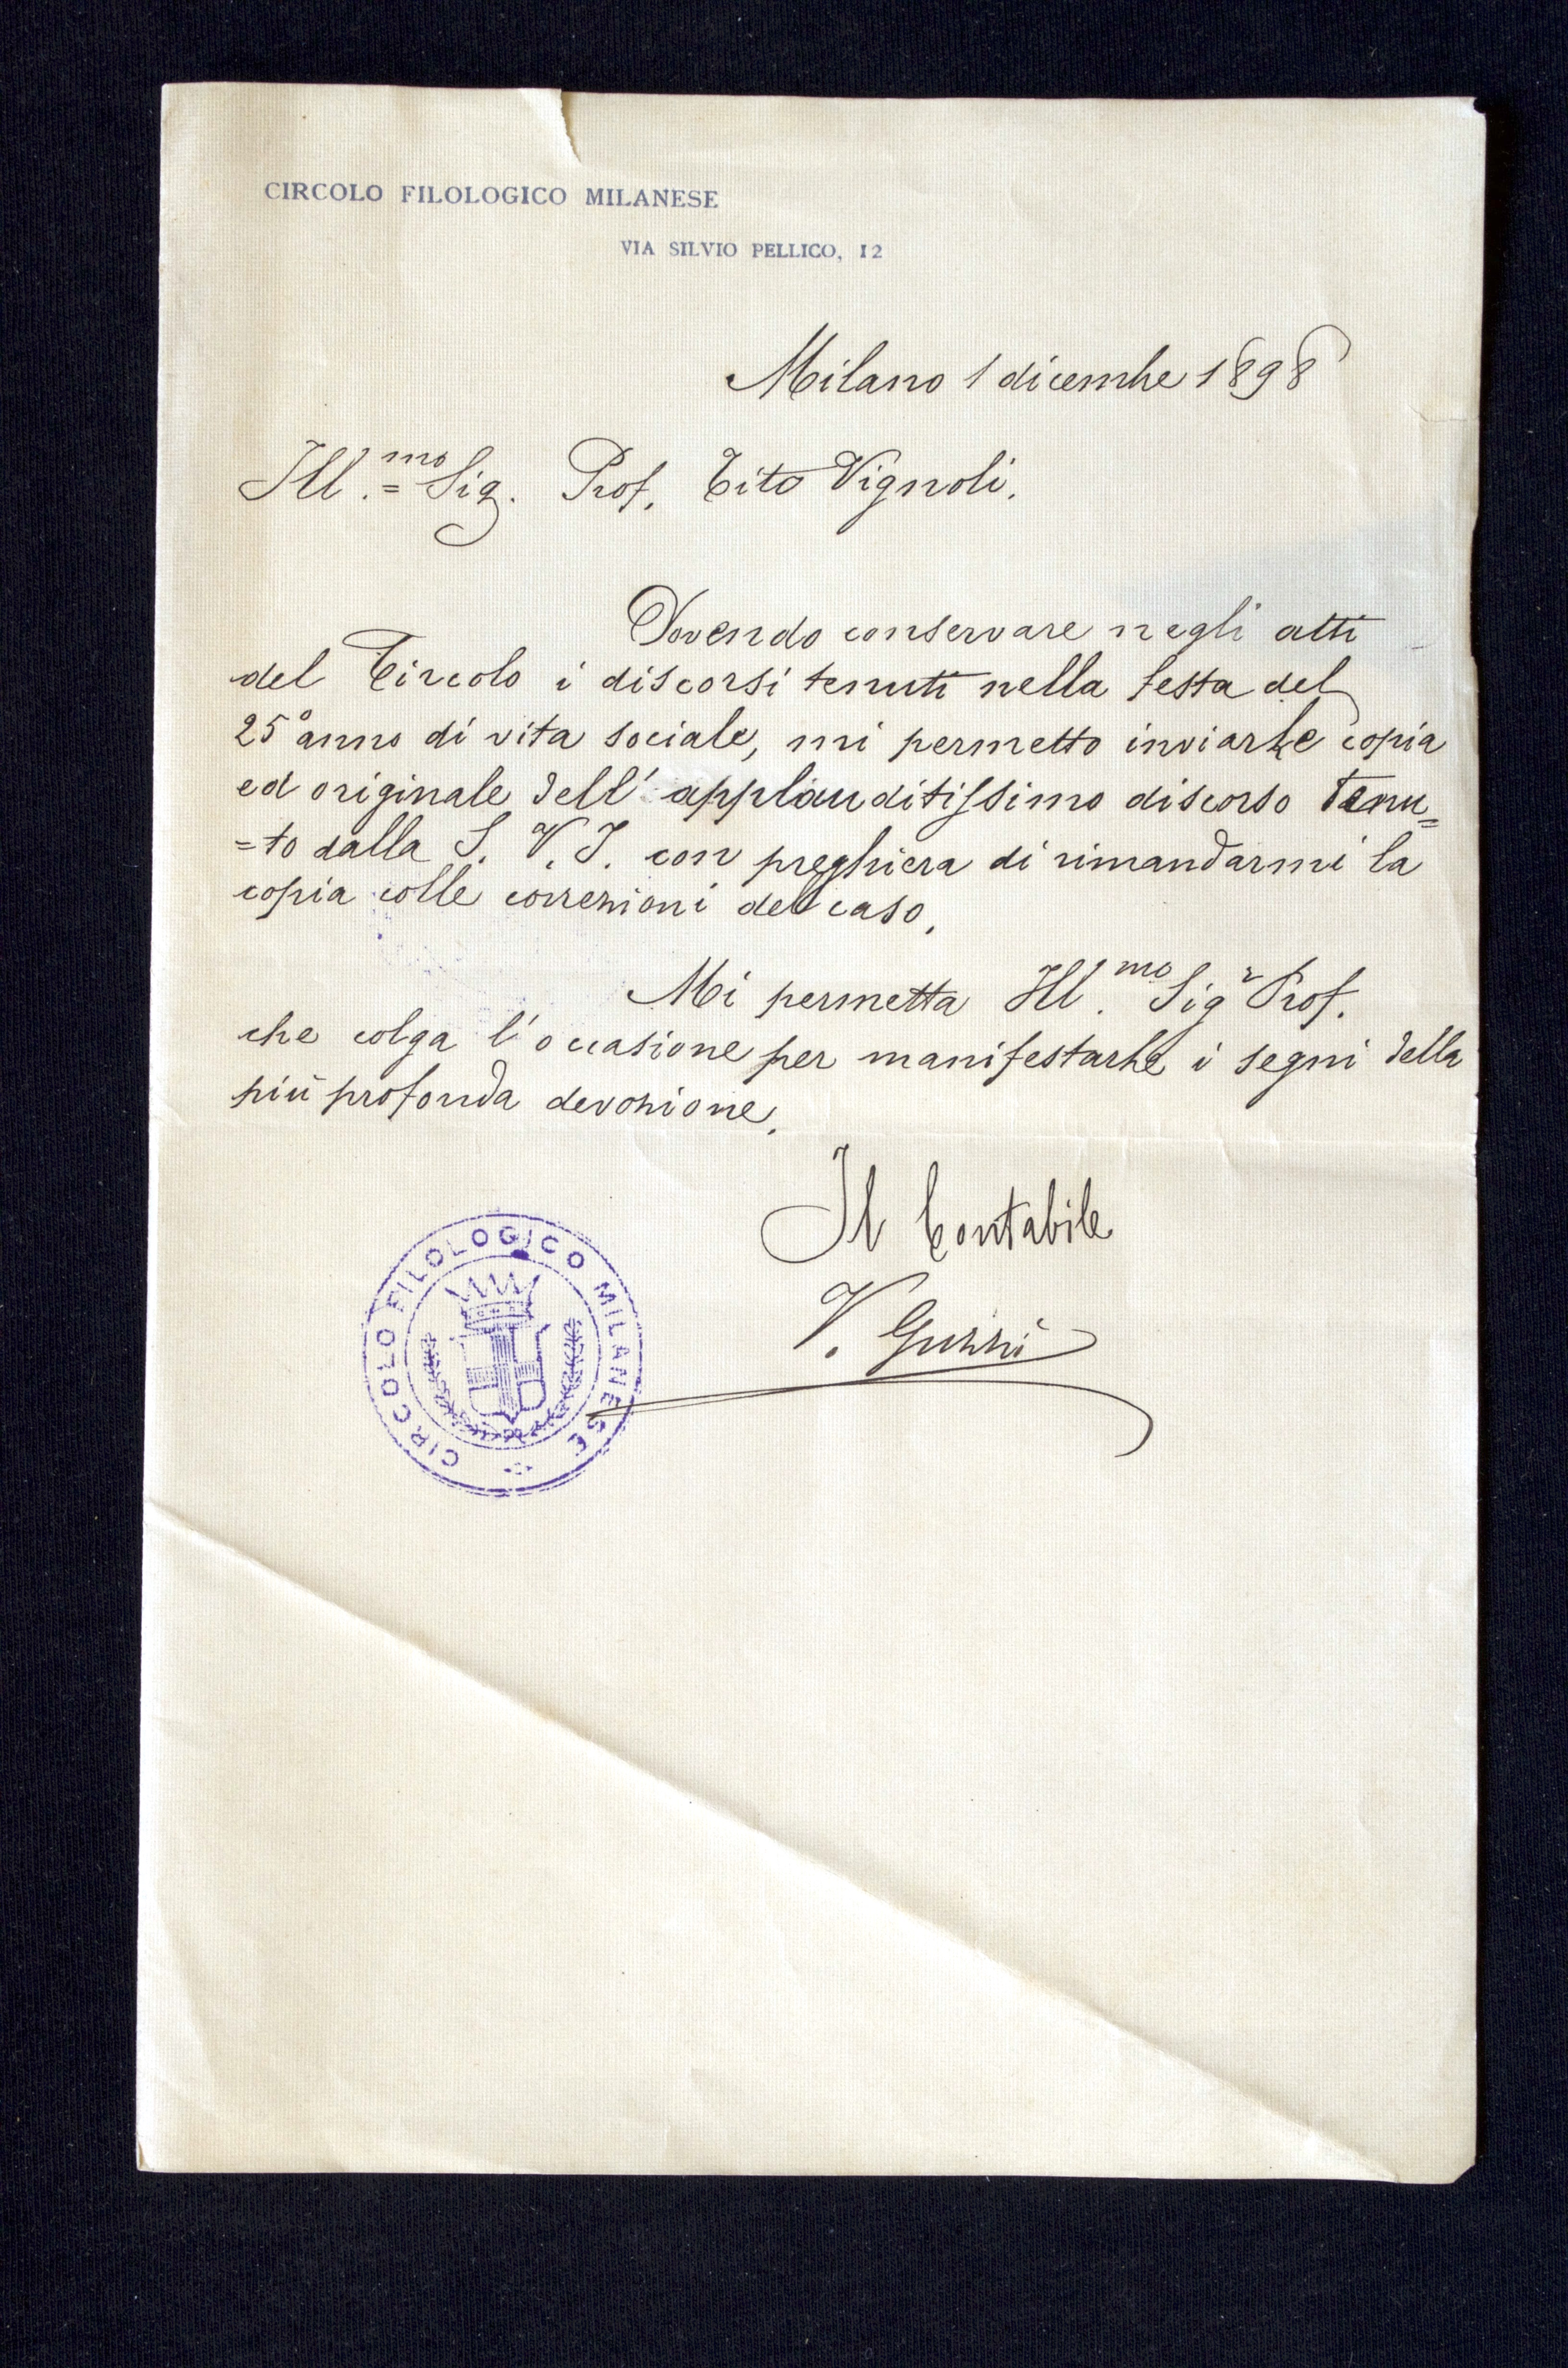 CIRCOLO FILOLOGICO MILANESE
VIA SILVIO PELLICO, 12
Milano 1 dicembre 1898
Ill.mo Sig. Prof. Tito Vignoli.
Dovendo conservare negli atti
del Circolo i discorsi tenuti nella festa del
25° anno di vita sociale, mi permetto inviarle copia
ed originale dell' applauditissimo discorso tenu=
=to dalla S. V. I. con preghiera di rimandarmi la
copia colle correzioni del caso.
Mi permetta Ill.mo Sigr Prof.
che colga l'occasione per manifestarle i segni della
più profonda devozione.
Il Contabile
V. Guzzi
CIRCOLO FILOLOGICO MILANESE